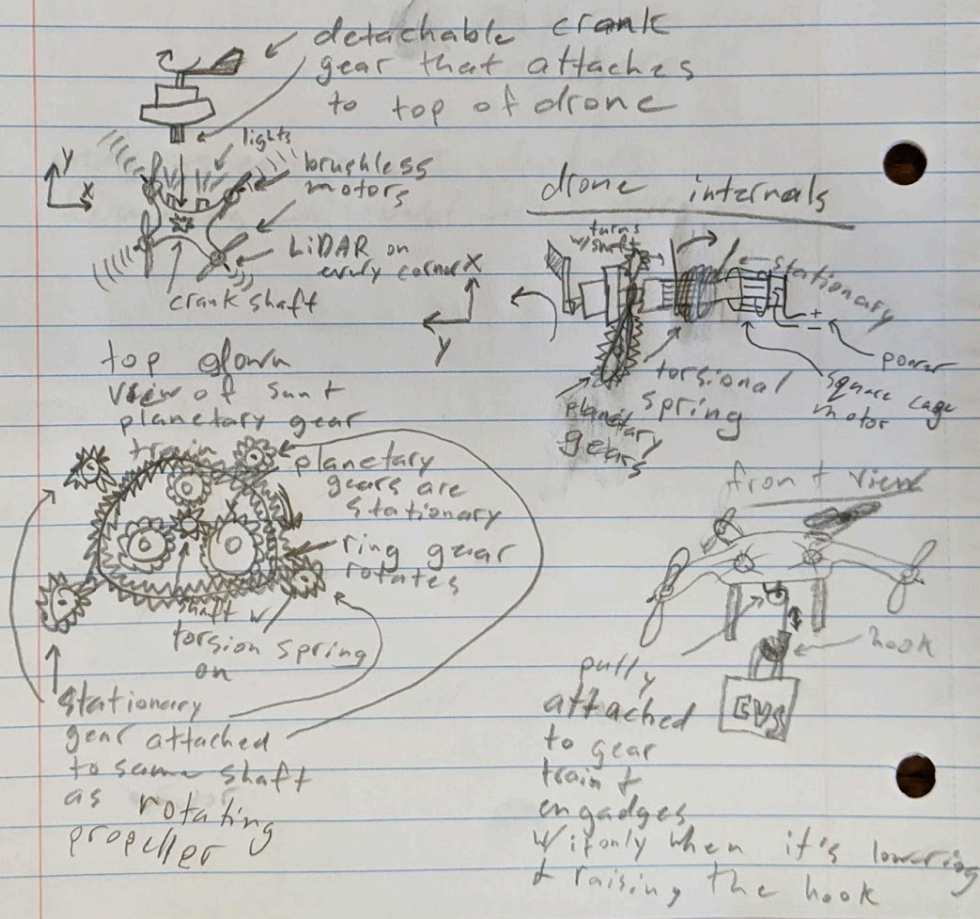 detachable crank
gear that attaches
to top of drone
lights
brushless
motors
LiDAR on
every corner
crank shaft
Y
X
drone internals
turns
w/shaft
stationary
X
Y
+
-
power
square cage
motor
torsional
spring
planitary
gears
top down
view of sun +
planetary gear
train
planetary
gears are
stationary
ring gear
rotates
shaft w/
torsion spring
on
stationary
gear attached
to same shaft
as rotating
propeller
front view
hook
CVS
pully
attached
to gear
train +
engadges
w/ it only when it's lowering
+ raising the hook